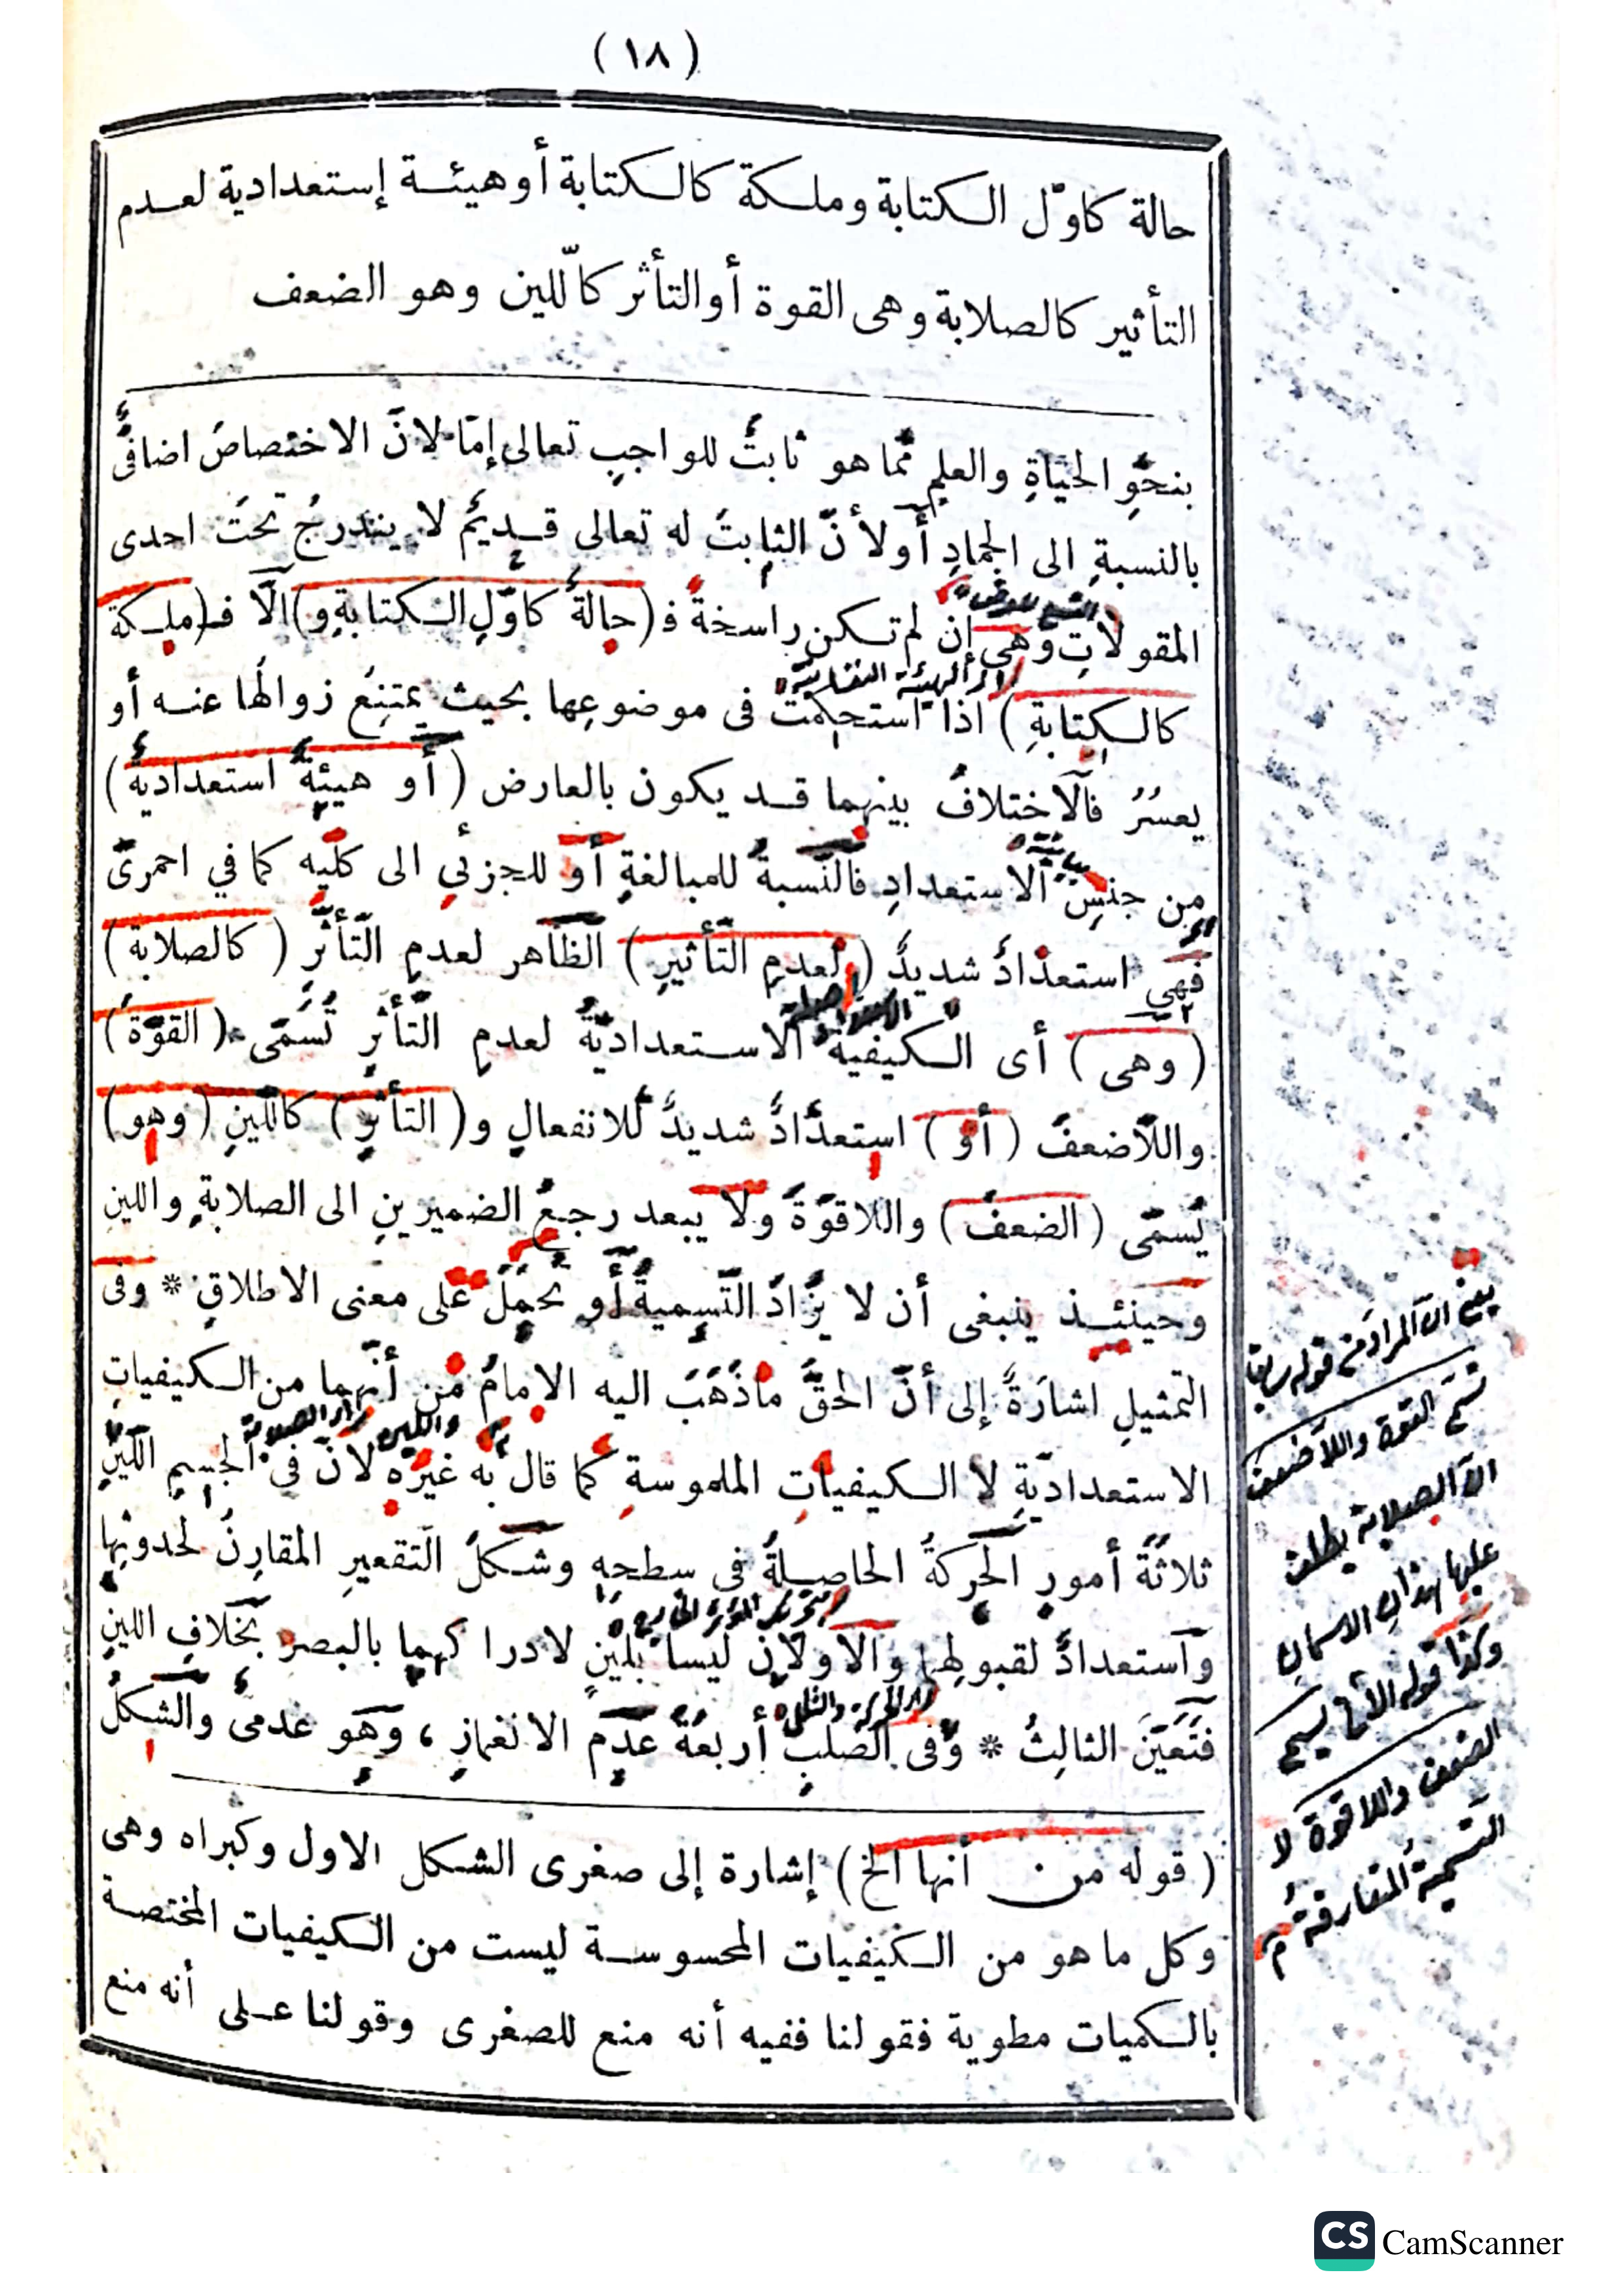 (١٨)
حالة كاوّل الكتابة وملكة كالكتابة أو هيئة إستعدادية لعدم
التأثير كالصلابة وهى القوة أو التأثر كاللّين وهو الضعف
بنحوِ الحيَاةِ والعلمِ ممّا هو ثابتٌ للواجبِ تعالى إمّا لانّ الاختصاصَ اضافىٌّ
بالنسبةِ الى الجمادِ أو لأنّ الثابتَ له تعالى قديمٌ لا يندرجُ تحتَ احدى
المقولاتِ وهى إن لم تكن راسخةً فـ(حالةٌ كاوّلِ الكتابةِ و) الّا فـ(ملكة
كالكتابةِ) اذا استحكمت فى موضوعِها بحيث يمتنِعُ زوالُها عنه أو
يعسُرُ فالاختلافُ بينهما قد يكون بالعارض (أو هيئةٌ استعداديةٌ)
من جنسِ الاستعدادِ فالنّسبةُ للمبالغةِ أو للجزئىِ الى كليّه كما في احمرىّ
فهى استعدادٌ شديدٌ (لعدمِ التّأثيرِ) الظّاهر لعدمِ التّأثّرِ (كالصلابة)
(وهى) أى الكيفيةُ الاستعداديّةُ لعدمِ التّأثرِ تُسَمّى (القوّةَ)
واللّاضعفَ (أو) استعدادٌ شديدٌ للانفعالِ و(التأثرِ) كاللّينِ (وهو)
يُسمّى (الضعفَ) واللاقوّةَ ولا يبعد رجعُ الضميرينِ الى الصلابةِ واللينِ
وحينئذ ينبغى أن لا يُرَادَ التّسميةُ أو تُحمَلَ على معنى الاطلاقِ * وفى
التمثيلِ اشارَةٌ إلى أنّ الحقَّ ماذَهَبَ اليه الإمامُ من أنّهما من الكيفياتِ
الاستعداديّةِ لا الكيفياتِ الملموسةِ كما قال به غيرُه لانّ فى الجسمِ اللّينِ
ثلاثةَ أمورٍ الحركةُ الحاصلةُ فى سطحِهِ وشكلُ التقعيرِ المقارنُ لحدوثِها
واستعدادٌ لقبولِهما والاولانِ ليسا بلينٍ لادراكهما بالبصرِ بخلافِ اللينِ
فتَعَيّنَ الثالثُ * وفى الصّلبِ أربعةٌ عدَمُ الانغمازِ ، وهو عدمىٌ والشكلُ
(قوله من أنها الخ) إشارة إلى صغرى الشكل الاول وكبراه وهى
وكل ما هو من الكيفيات المحسوسة ليست من الكيفيات المختصة
بالكميات مطوية فقولنا ففيه أنه منع للصغرى وقولنا على أنه منع
يعنى ان المراد من قوله سابقا
تسمى القوة واللاضعف
ان الصلابة يطلق
عليها هذان الاسمان
وكذا قوله الآتى يسمى
الضعف واللاقوة لا
التسمية المتعارفة
CamScanner